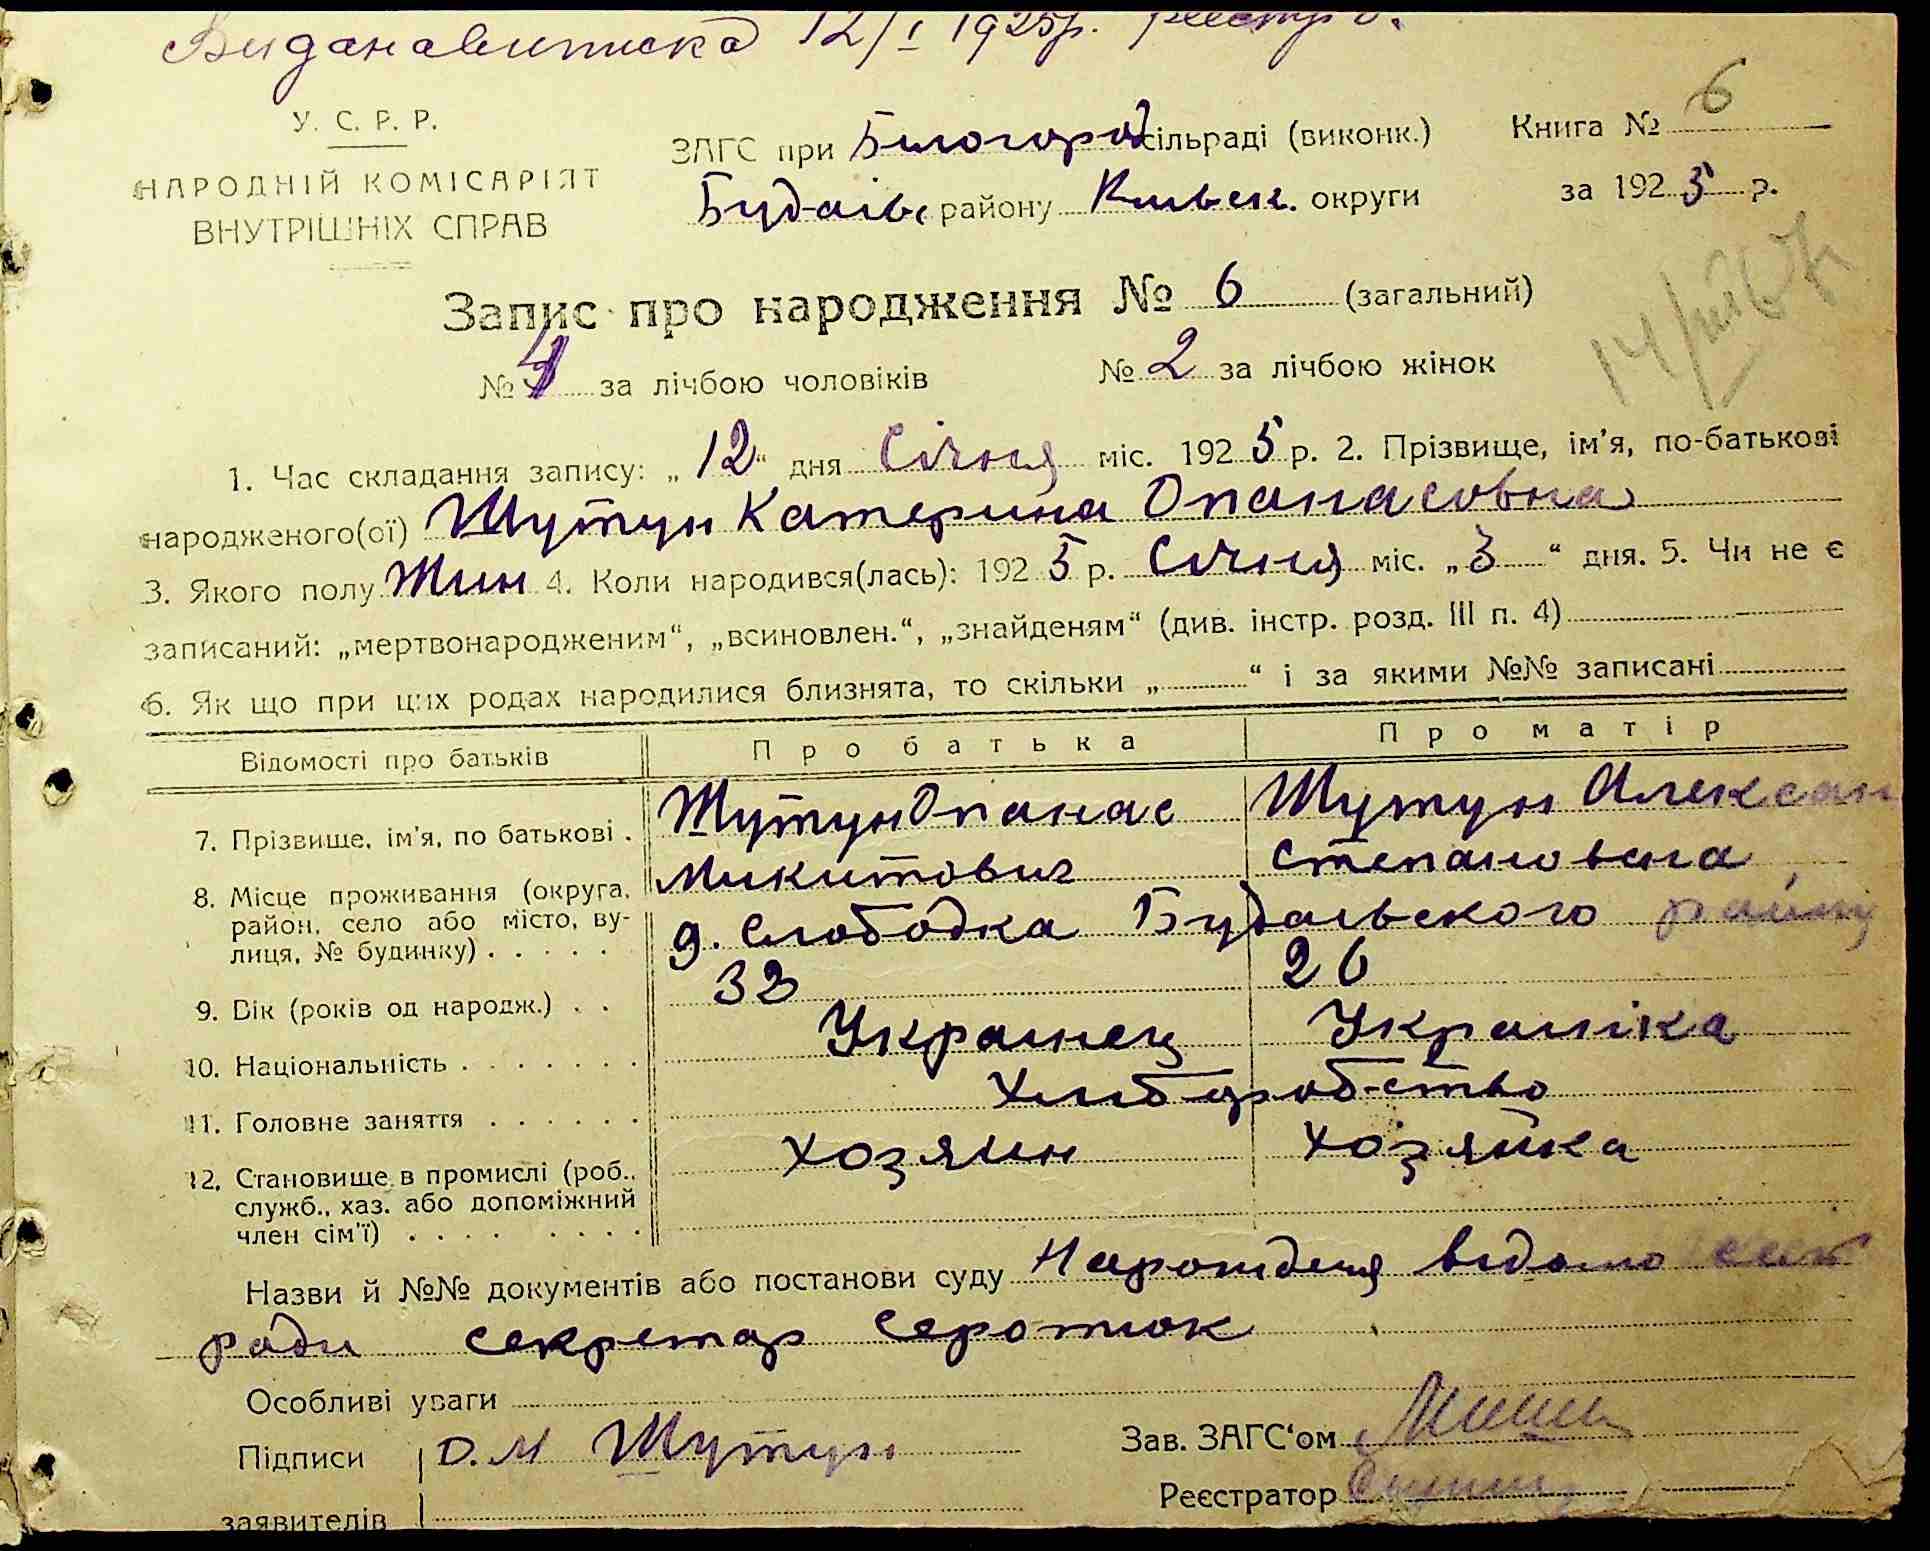 Видана виписка 12/I 1925р. реєстр 6.
У. С. Р. Р.
НАРОДНІЙ КОМІСАРІЯТ
ВНУТРІШНІХ СПРАВ
ЗАГС при Білогород сільраді (виконк.)
Будаівс району Київск. округи
Книга № 6
за 1925 р.
Запис про народження № 6 (загальний)
№ 4 за лічбою чоловіків № 2 за лічбою жінок
1. Час складання запису: „12“ дня Січня міс. 1925 р. 2. Прізвище, ім’я, по-батькові
народженого(ої) Шутун Катерина Опанасовна
3. Якого полу Жин 4. Коли народився(лась): 1925 р. Січня міс. „3“ дня. 5. Чи не є
записаний: „мертвонародженим“, „всиновлен.“, „знайденям“ (див. інстр. розд. III п. 4)
6. Як що при цих родах народилися близнята, то скільки „ “ і за якими №№ записані
Відомості про батьків Про батька Про матір
7. Прізвище, ім’я, по батькові . Шутун Опанас Микитович Шутун Алексан Степановна
8. Місце проживання (округа,
район, село або місто, ву-
лиця, № будинку) . . . . . д. Слободка Будаівського району
9. Вік (років од народж.) . . 33 26
10. Національність . . . . . . . Украинец Украінка
11. Головне заняття . . . . . . Хлиборобство
12. Становище в промислі (роб.,
служб., хаз. або допоміжний
член сім’ї) . . . . . . . . хозяин хозяйка
Назви й №№ документів або постанови суду Нарождення відомо сель
ради секретар Серотюк
Особливі уваги
Підписи О. М Шутун
заявителів
Зав. ЗАГС‘ом
Реєстратор